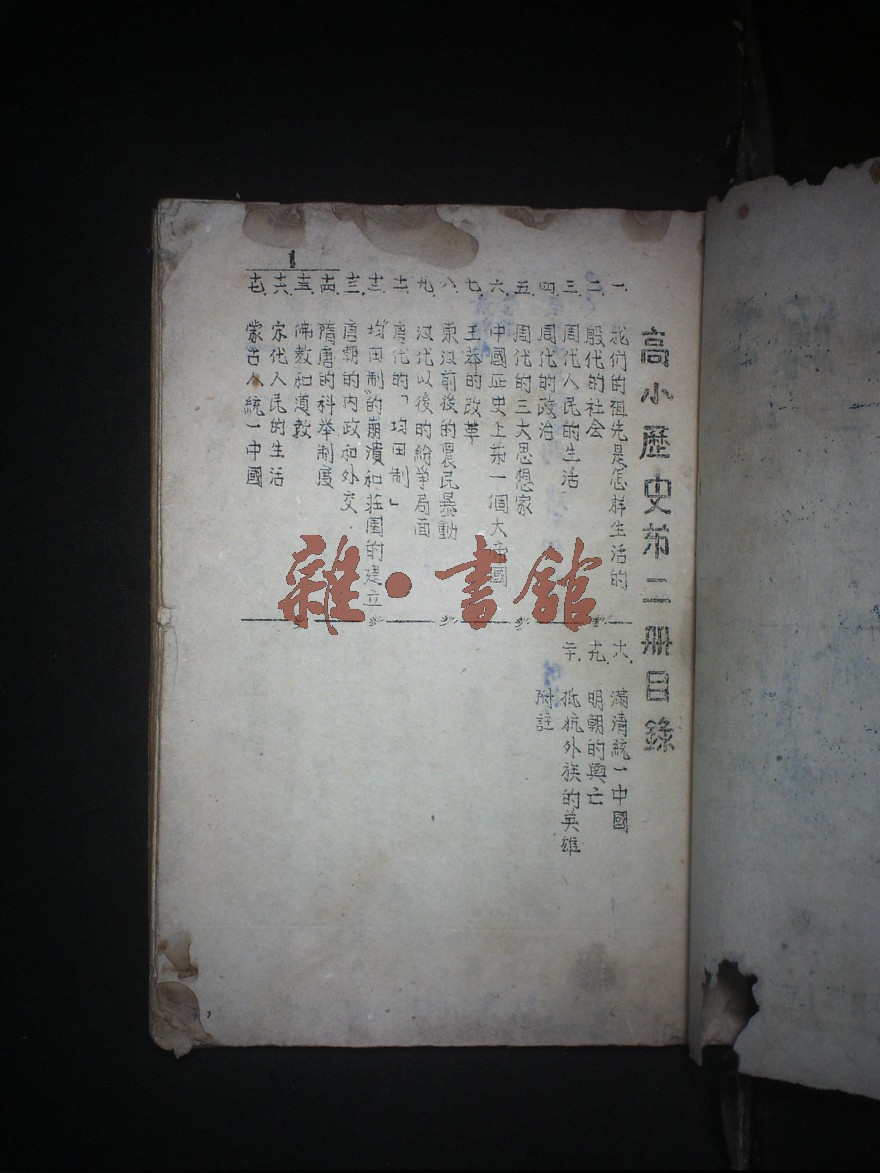 高小歷史第二册目錄
一. 我們的祖先是怎样生活的
二. 殷代的社会
三. 周代人民的生活
四. 周代的政治
五. 周代的三大思想家
六. 中國歷史上第一個大帝國
七. 王莽的改革
八. 東汉前後的農民暴動
九. 汉代以後的紛爭局面
十一. 唐代的「均田制」
十二. "均田制"的崩潰和莊園的建立
十三. 唐朝的内政和外交
十四. 隋唐的科举制度
十五. 佛教和道教
十六. 宋代人民的生活
十七. 蒙古人統一中國
十八. 滿清統一中國
十九. 明朝的興亡
二十. 抵抗外族的英雄
附註
1
雜·書館